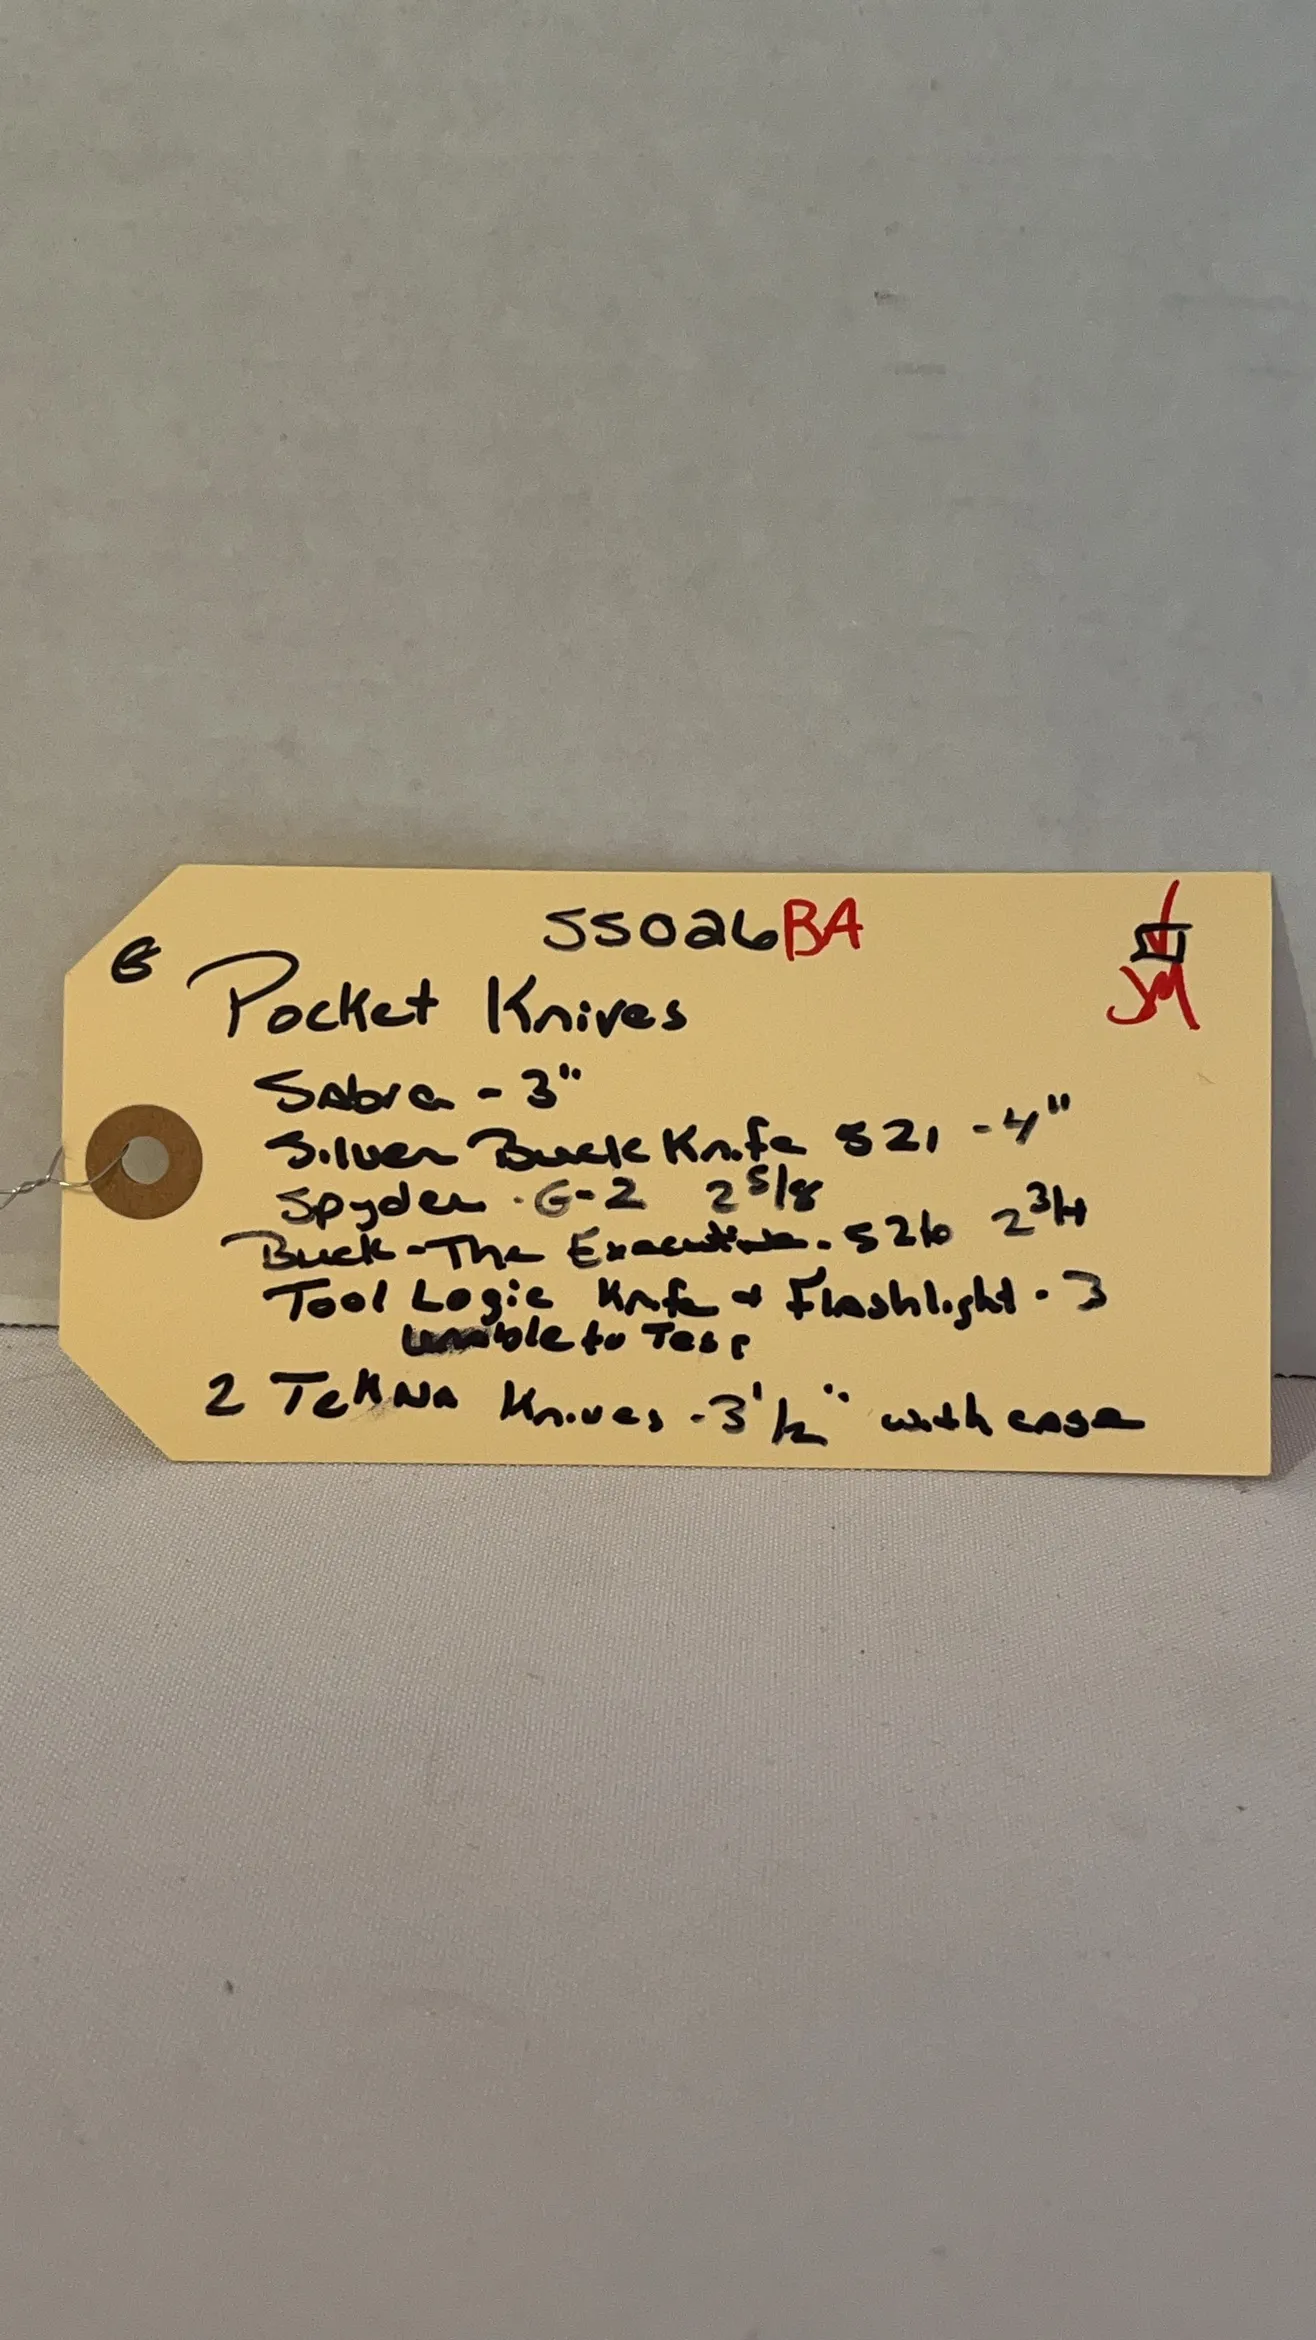 55026BA
G
JM
Pocket Knives
Sabre - 3"
Silver Buck Knife 521 - 4"
Spyder - G-2 2 5/8
Buck - The Executive - 526 2 3/4
Tool Logic Knife & Flashlight - 3
Unable to Test
2 TeKNa Knives - 3 1/2" with case